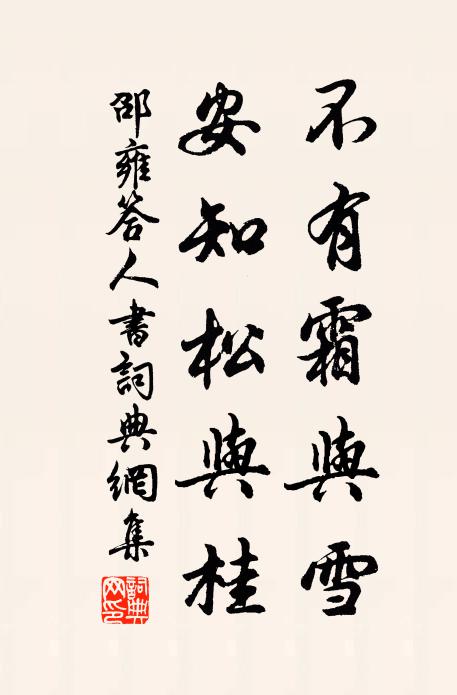 不有霜與雪
安知松與桂
邵雍答人書詞典網集
詞典网印